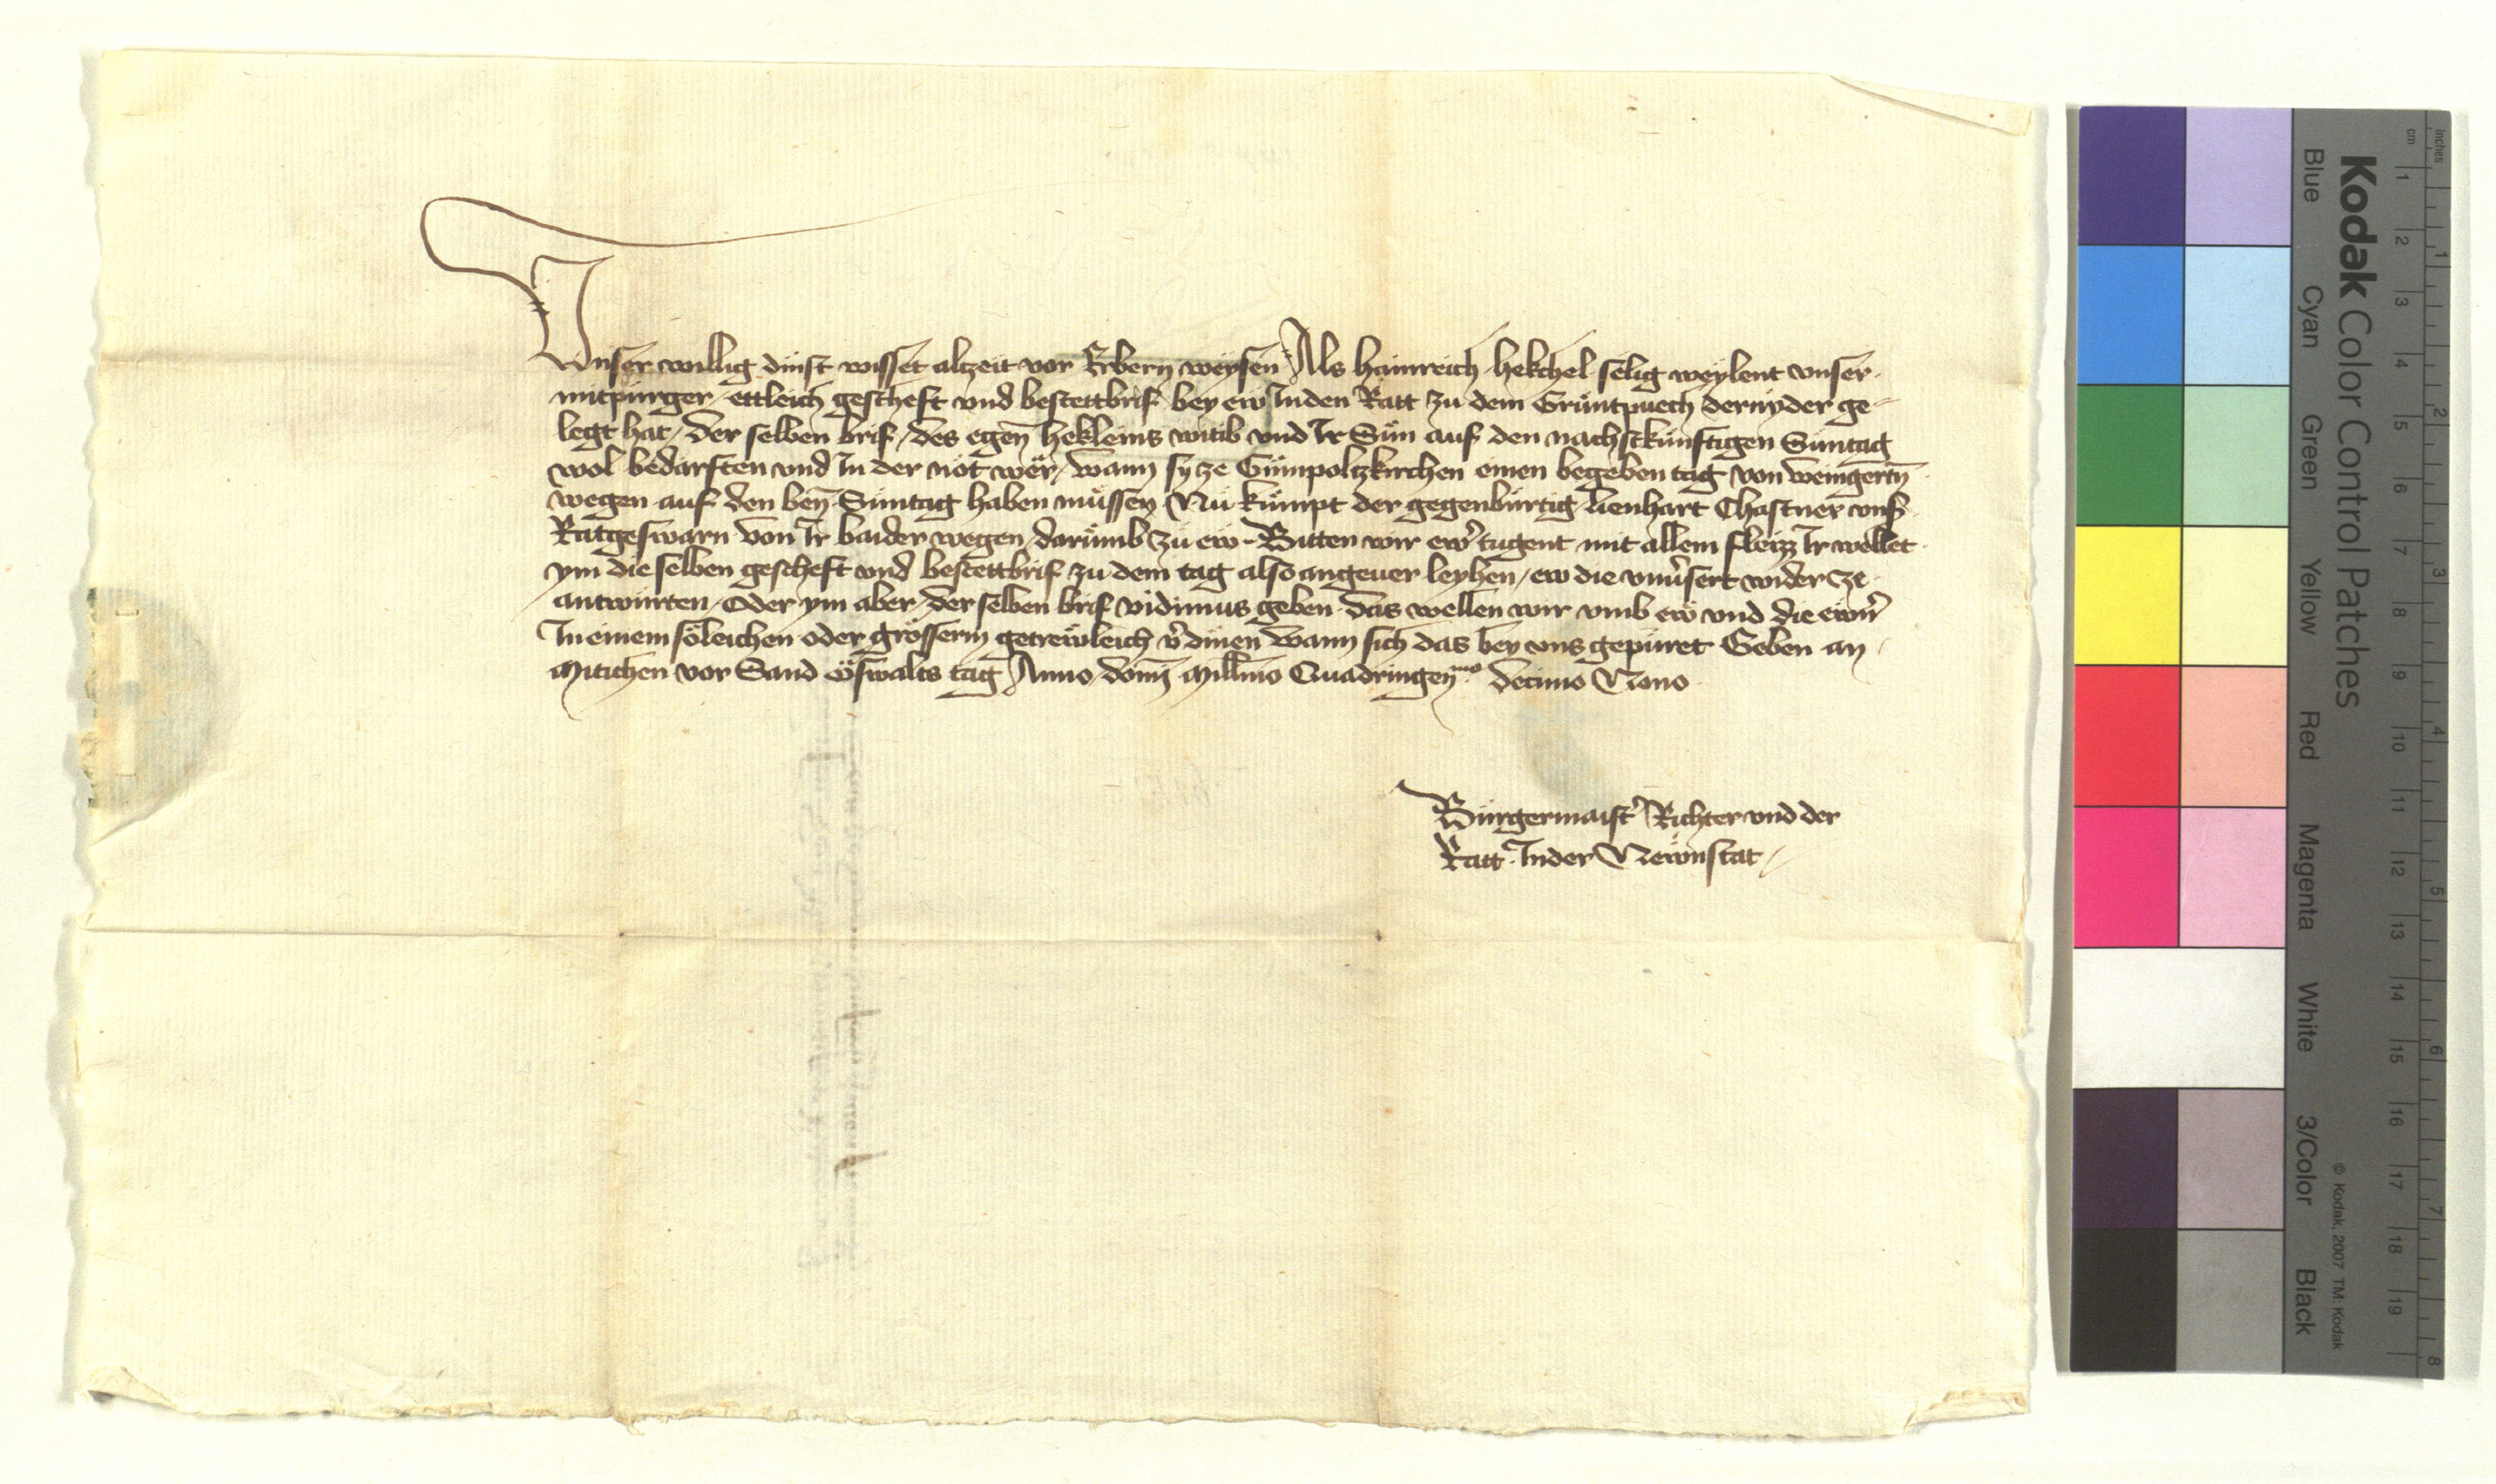 Vnser willig dinst wisset alczeit vor Erbern weysen Als Hainreich Hekchel sëlig weylent vnser
mitpurger / ettleich gescheft vnd bestettbrif bey ew In den Ratt zu dem Grüntpuech dernyder ge-
legt hat / der selben brif / des egen̄ Hekleins witib vnd Ir Sün auf den nachstkünftigen Suntag
wol bedarften vnd In der nöt wër / wann sy ze Gümpoltzkirchen einen begeben tag von weingertn̄
wegen auf den ben̄ Suntag haben müssen Nü kümpt der gegenbürtig Lienhart Chastner vnsˀ
Ratgeswarn von Ir baider wegen / darumb zu ew - Bitten wir ewˀ tugent mit allem fleizz Ir wellet
ym die selben gescheft vnd bestettbrif zu dem tag also angeuer leyhen / ew die vnuˀsert wider ze
antwürten / Oder ym aber / der selben brif vidimus geben das wellen wir vmb ew vnd die ewrn̄
In einem söleichen oder grösserm getrewleich vˀdinen wann sich das bey vns gepüret Geben an
Mitichen vor Sand Öswalts tag Anno domī Millīmo Quadringen̄ᵐᵒ decimo Nono
Burgermaistˀ Richter vnd der
Ratt In der Newnstat /
Kodak Color Control Patches
© Kodak, 2007 TM: Kodak
Blue Cyan Green Yellow Red Magenta White 3/Color Black
cm 1 2 3 4 5 6 7 8 9 10 11 12 13 14 15 16 17 18 19
inches 1 2 3 4 5 6 7 8